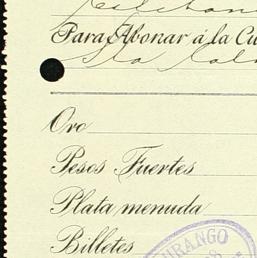 Para Abonar á la Cu
Oro
Pesos Fuertes
Plata menuda
Billetes
URANGO